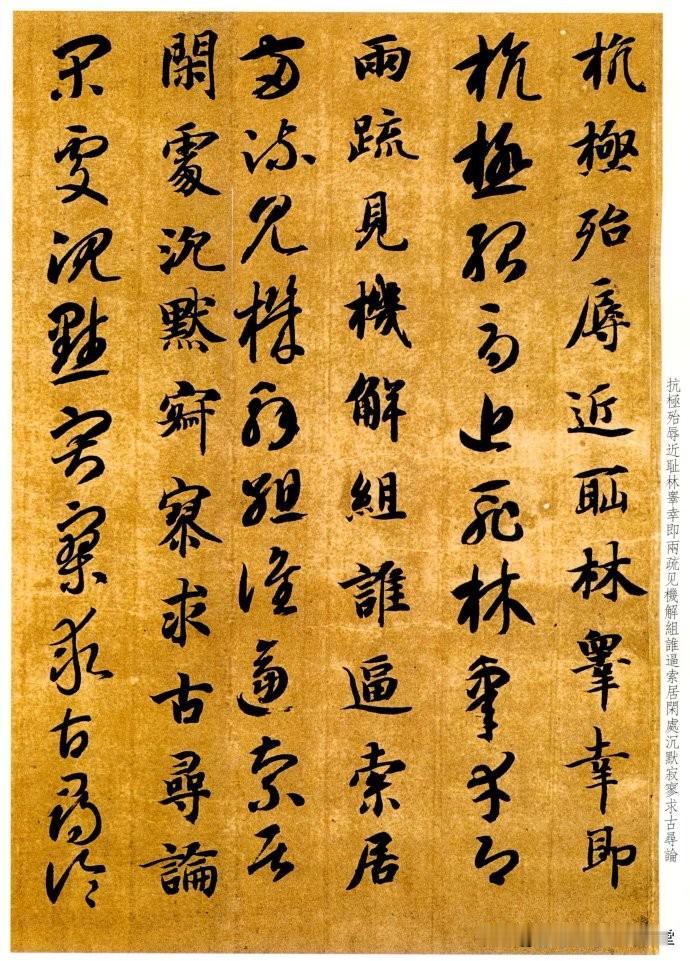 杭極殆辱近耻林睾幸即
杭極殆辱近耻林睾幸即
兩疏見機解組誰逼索居
兩疏見機解組誰逼索居
閑處沉默寂寥求古尋論
閑處沉默寂寥求古尋論
抗極殆辱近耻林睾幸即兩疏见機解組誰逼索居閑處沉默寂寥求古尋論